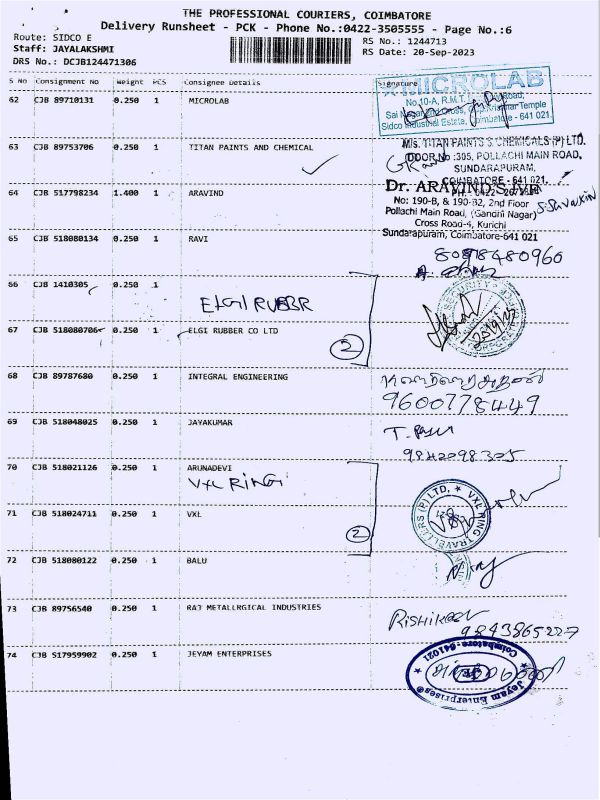 THE PROFESSIONAL COURIERS, COIMBATORE
Delivery Runsheet - PCK - Phone No.:0422-3505555 - Page No.:6
Route: SIDCO E
RS No.: 1244713
Staff: JAYALAKSHMI
RS Date: 20-Sep-2023
DRS No.: DCJB124471306
S No Consignment No Weight PCS Consignee Details Signature
62 CJB 89710131 0.250 1 MICROLAB
MICROLAB
No.10-A, R.M.T.
Sidco Industrial Estate, Coimbatore - 641 021
63 CJB 89753706 0.250 1 TITAN PAINTS AND CHEMICAL
M/s. TITAN PAINTS & CHEMICALS (P) LTD.
DOOR No :395, POLLACHI MAIN ROAD,
SUNDARAPURAM,
COIMBATORE - 641 021.
64 CJB 517798234 1.400 1 ARAVIND
Dr. ARAVIND'S
No: 190-B, & 190-B2, 2nd Floor
Pollachi Main Road, (Gandhi Nagar)
Cross Road-4, Kurichi
Sundarapuram, Coimbatore-641 021
65 CJB 518080134 0.250 1 RAVI
8098480960
66 CJB 1410305 0.250 1
ELGI RUBBR
67 CJB 518080706 0.250 1 ELGI RUBBER CO LTD
2
68 CJB 89787680 0.250 1 INTEGRAL ENGINEERING
9600778449
69 CJB 518048025 0.250 1 JAYAKUMAR
9842098305
70 CJB 518021126 0.250 1 ARUNADEVI
VXL RING
71 CJB 518024711 0.250 1 VXL
VXL RING TRAVELLERS (P) LTD,
2
72 CJB 518080122 0.250 1 BALU
73 CJB 89756540 0.250 1 RAJ METALLRGICAL INDUSTRIES
9843865227
74 CJB 517959902 0.250 1 JEYAM ENTERPRISES
Coimbatore-641021
Jeyam Enterprises